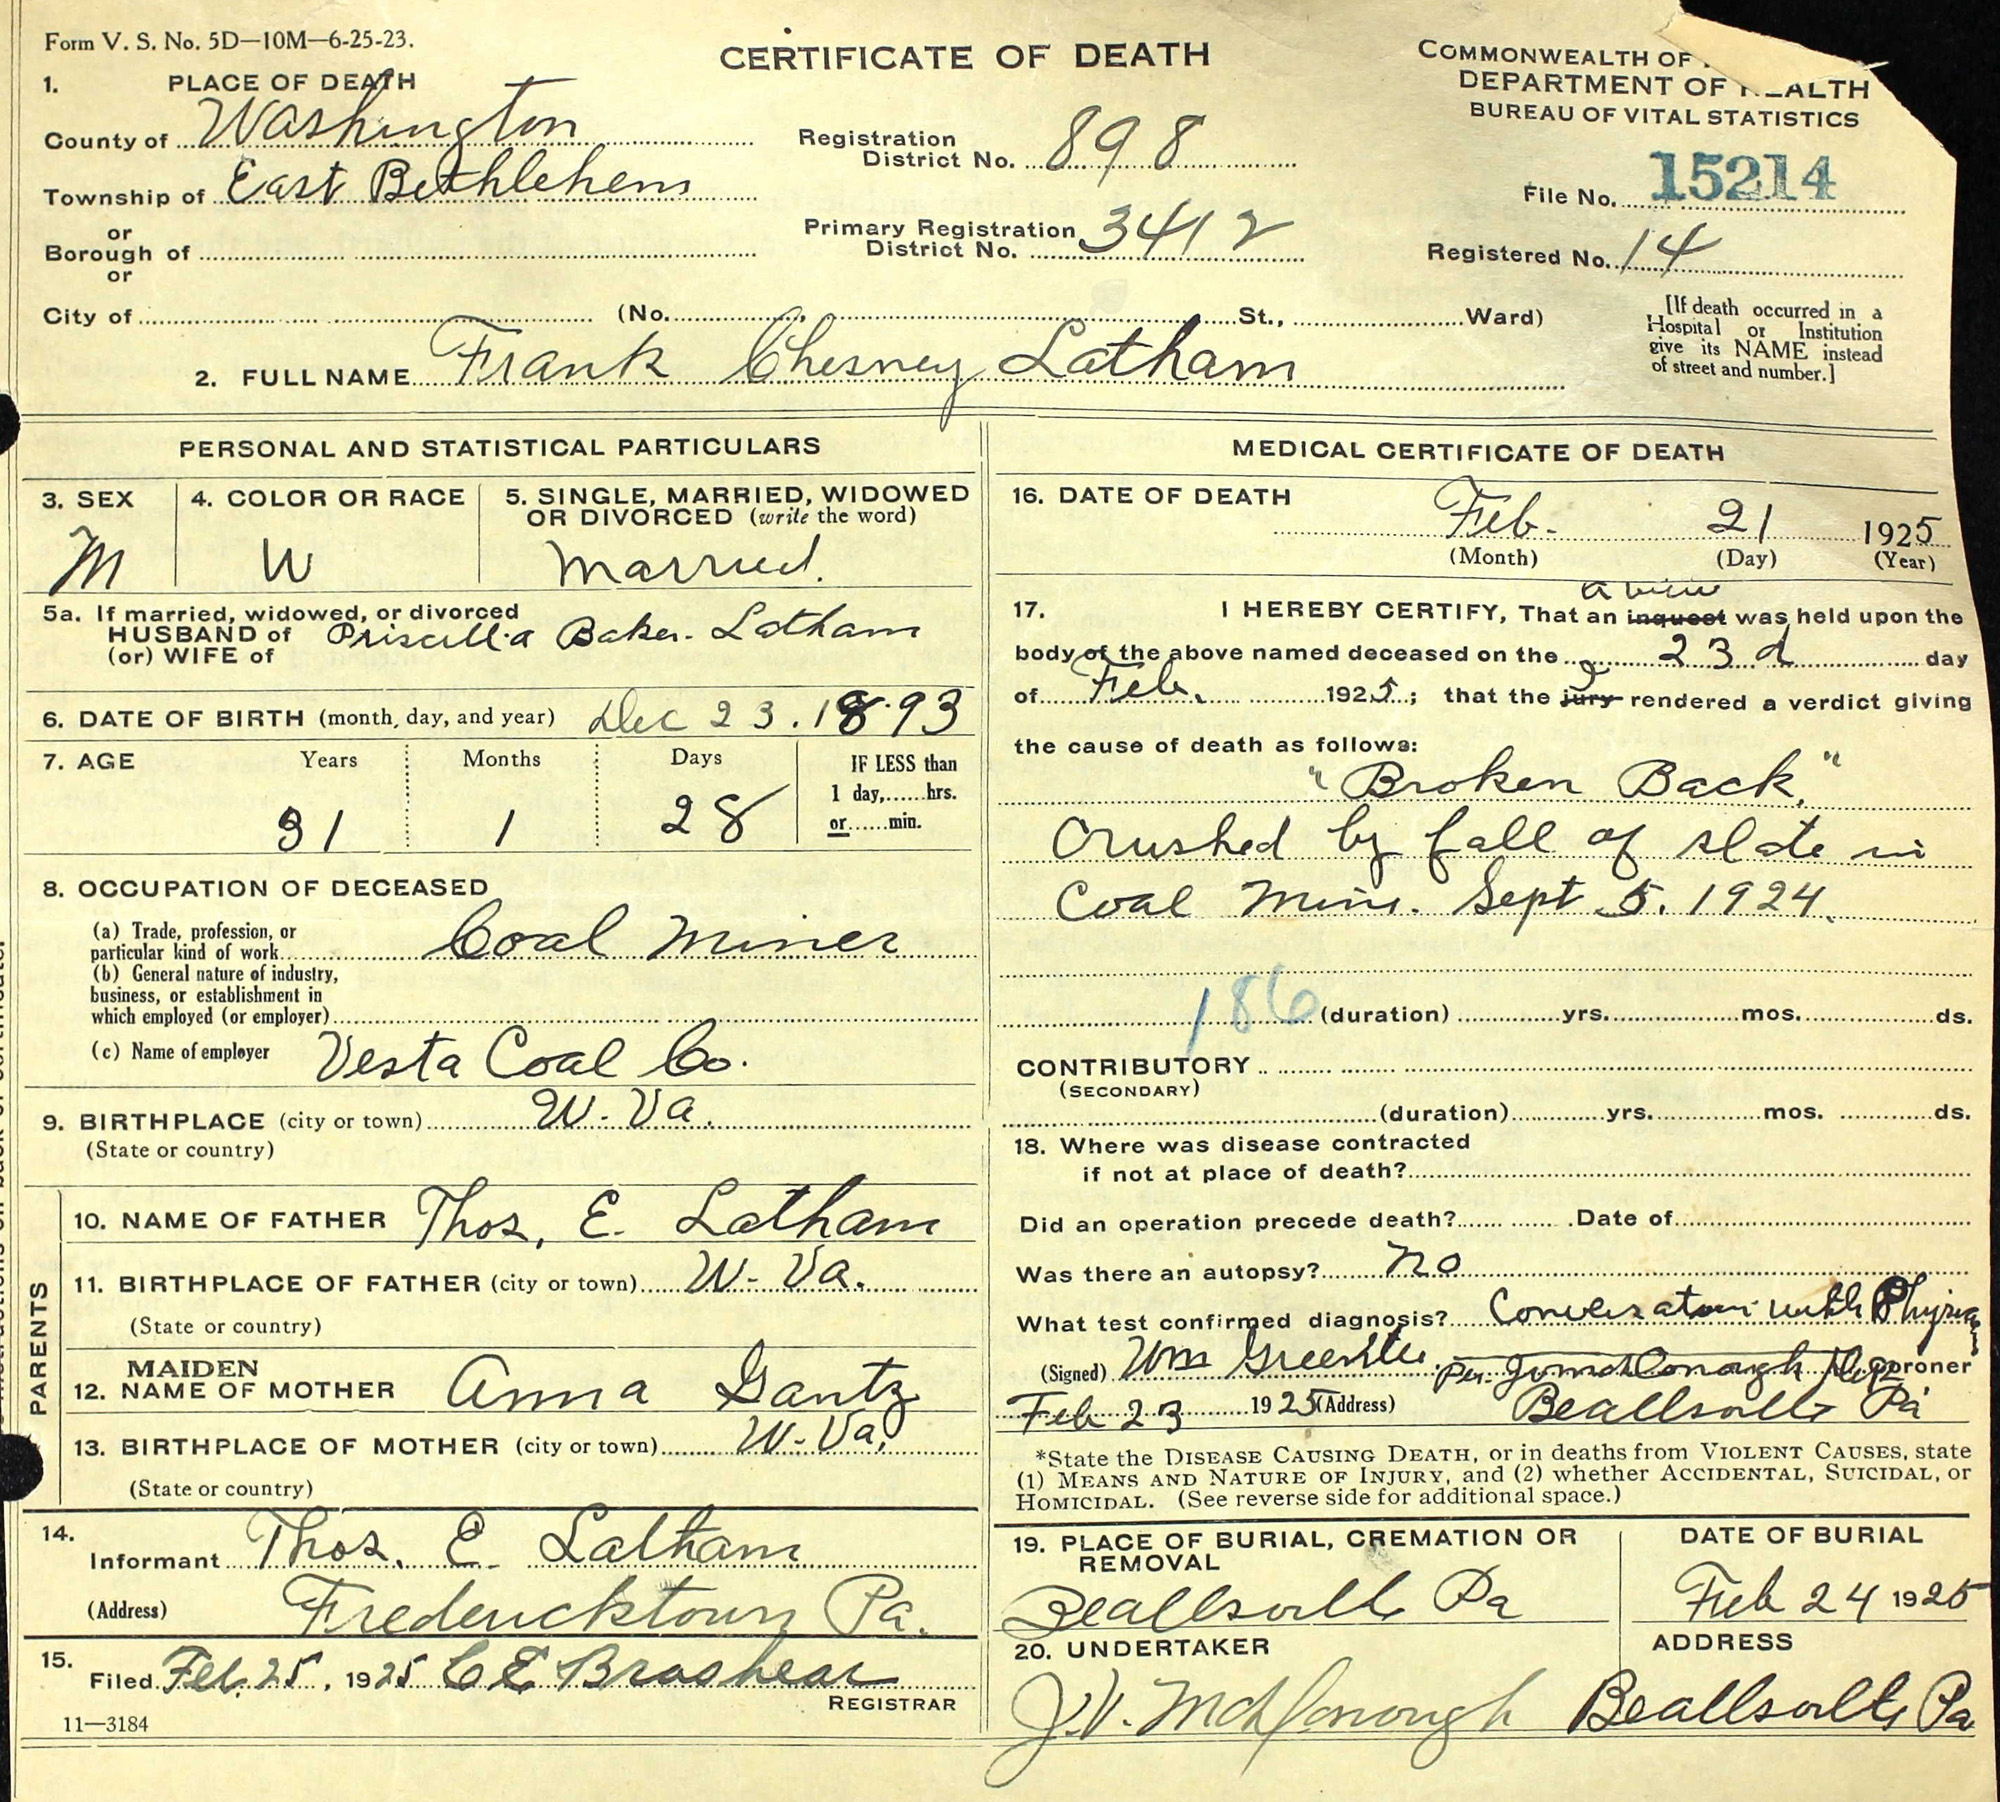 Form V. S. No. 5D—10M—6-25-23.
CERTIFICATE OF DEATH
COMMONWEALTH OF
DEPARTMENT OF HEALTH
BUREAU OF VITAL STATISTICS
1. PLACE OF DEATH
County of Washington
Registration District No. 898
File No. 15214
Township of East Bethlehem
or
Borough of
or
Primary Registration District No. 3412
Registered No. 14
City of (No. St., Ward)
[If death occurred in a Hospital or Institution give its NAME instead of street and number.]
2. FULL NAME Frank Chesney Latham
PERSONAL AND STATISTICAL PARTICULARS
3. SEX
M
4. COLOR OR RACE
W
5. SINGLE, MARRIED, WIDOWED OR DIVORCED (write the word)
Married.
5a. If married, widowed, or divorced
HUSBAND of Priscilla Baker-Latham
(or) WIFE of
6. DATE OF BIRTH (month, day, and year) Dec 23. 1893
7. AGE Years Months Days
31 1 28
IF LESS than
1 day,......hrs.
or......min.
8. OCCUPATION OF DECEASED
(a) Trade, profession, or
particular kind of work Coal Miner
(b) General nature of industry,
business, or establishment in
which employed (or employer)
(c) Name of employer Vesta Coal Co.
9. BIRTHPLACE (city or town) W. Va.
(State or country)
PARENTS
10. NAME OF FATHER Thos. E. Latham
11. BIRTHPLACE OF FATHER (city or town) W. Va.
(State or country)
12. MAIDEN NAME OF MOTHER Anna Gantz
13. BIRTHPLACE OF MOTHER (city or town) W. Va.
(State or country)
14.
Informant Thos. E. Latham
(Address) Fredericktown Pa.
15.
Filed Feb. 25, 1925 C E Brashear
REGISTRAR
11—3184
MEDICAL CERTIFICATE OF DEATH
16. DATE OF DEATH
Feb. 21 1925
(Month) (Day) (Year)
a view
17. I HEREBY CERTIFY, That an inquest was held upon the
body of the above named deceased on the 23d day
I
of Feb. 1925; that the jury rendered a verdict giving
the cause of death as follows:
"Broken Back,"
Crushed by fall of slate in
Coal Mine. Sept 5. 1924.
186 (duration) yrs. mos. ds.
CONTRIBUTORY
(SECONDARY)
(duration) yrs. mos. ds.
18. Where was disease contracted
if not at place of death?
Did an operation precede death? Date of
Was there an autopsy? No
What test confirmed diagnosis? Conversation with Physician
(Signed) Wm Greenlee. Per. J V McDonough Dep Coroner
Feb 23 1925 (Address) Beallsville Pa
*State the DISEASE CAUSING DEATH, or in deaths from VIOLENT CAUSES, state
(1) MEANS AND NATURE OF INJURY, and (2) whether ACCIDENTAL, SUICIDAL, or
HOMICIDAL. (See reverse side for additional space.)
19. PLACE OF BURIAL, CREMATION OR REMOVAL
Beallsville Pa
DATE OF BURIAL
Feb 24 1925
20. UNDERTAKER
J. V. McDonough
ADDRESS
Beallsville Pa